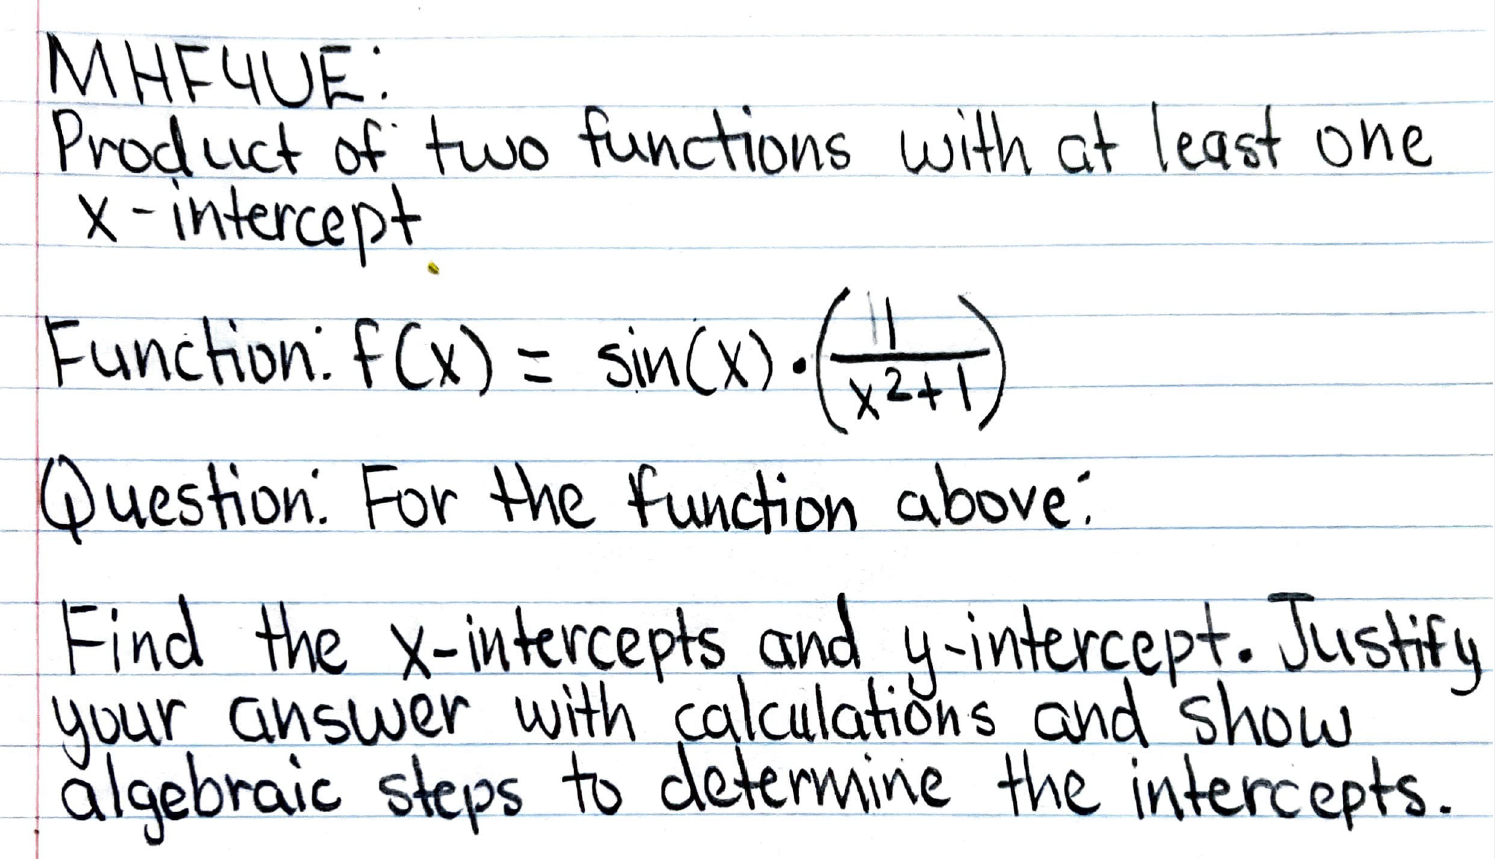 MHF4UE:
Product of two functions with at least one
x-intercept
Function: f(x) = sin(x) · (1/(x²+1))
Question: For the function above:
Find the x-intercepts and y-intercept. Justify
your answer with calculations and show
algebraic steps to determine the intercepts.